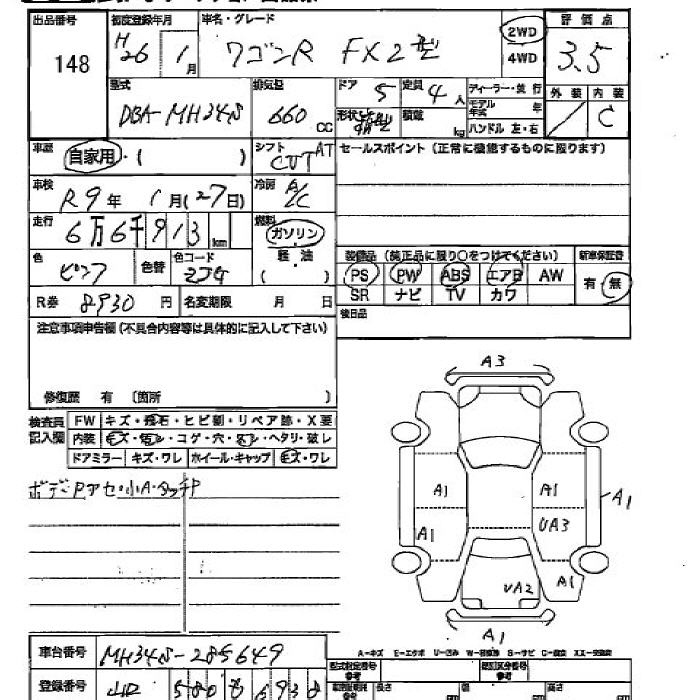 出品番号 初度登録年月 車名・グレード 2WD 評価点
148 H26年 1月 ワゴンR FX2型 4WD 3.5
型式 排気量 ドア 5 定員 4人 ディーラー・並行 外装 内装
DBA-MH34S 660cc 形状 積載 kg モデル年式 年 C
ハンドル 左・右
車歴 自家用・( ) シフト AT セールスポイント (正常に機能するものに限ります)
CVT
車検 R9年 1月(27日) 冷房 A/C
走行 6万6千913km 燃料 ガソリン
軽油
( )
色 ピンク 色替 色コード 装備品 (純正品に限り○をつけてください) 新車保証書
PS PW ABS エアB AW 有・無
R券 8930円 名変期限 月 日 SR ナビ TV カワ
注意事項申告欄(不具合内容等は具体的に記入して下さい) 後日品
修復歴 有 〔箇所 〕
検査員記入欄 FW キズ・飛石・ヒビ割・リペア跡・X要
内装 キズ・・コゲ・穴・・ヘタリ・破レ
ドアミラー キズ・ワレ ホイール・キャップ キズ・ワレ
ボデーPアセ・小A・タッチP
A3
A1 A1 A1
A1 UA3
A1
UA2
A1
A-キズ E-エクボ U-凹み
車台番号 MH34S-285649
型式指定番号 参考 類別区分番号 参考
登録番号 580
長さ cm 幅 cm 高さ cm